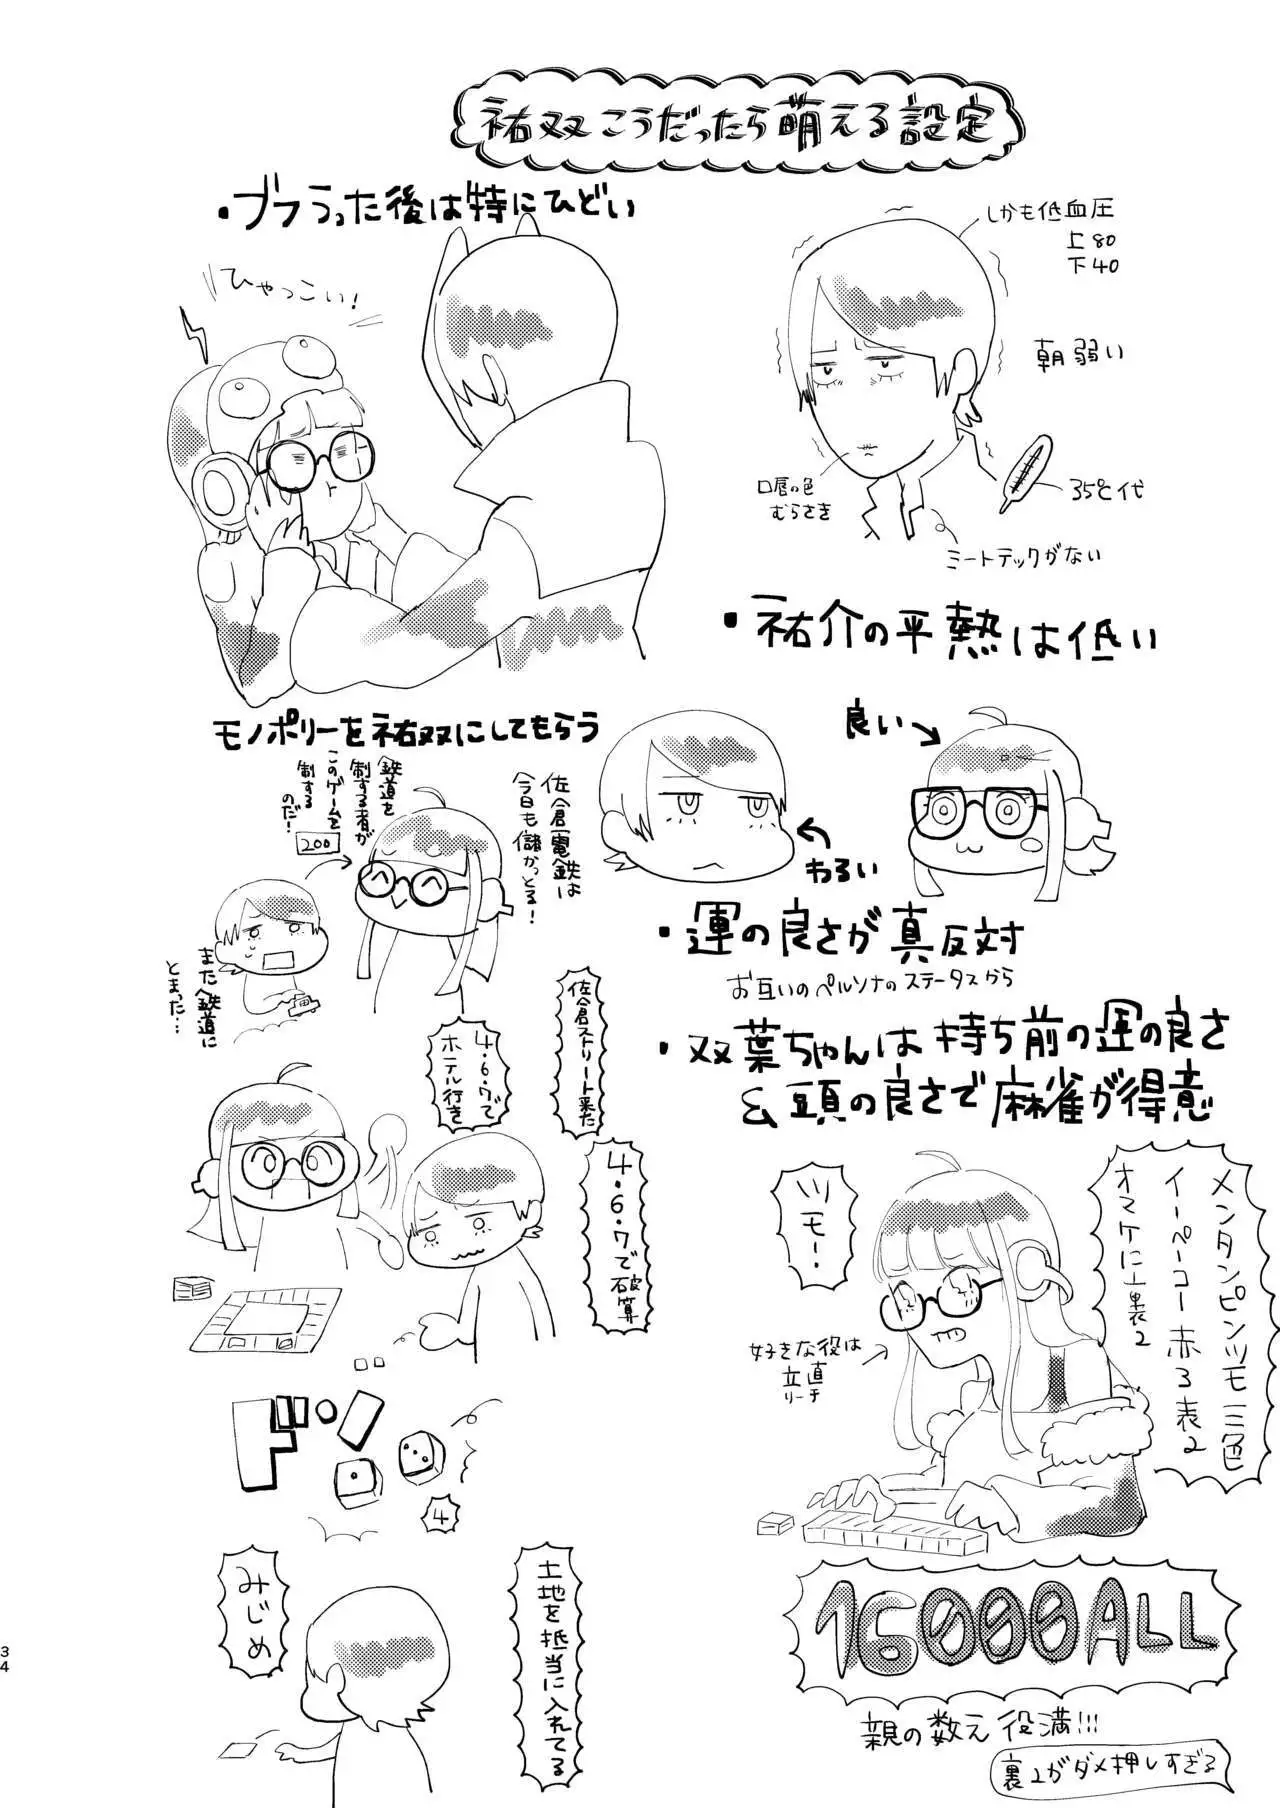 祐双こうだったら萌える設定
しかも低血圧
上80
下40
朝弱い
35℃代
口唇の色
むらさき
ミートテックがない
・祐介の平熱は低い
・ブフうった後は特にひどい
ひゃっこい!
良い
わるい
・運の良さが真反対
お互いのペルソナのステータスから
・双葉ちゃんは持ち前の運の良さ
&頭の良さで麻雀が得意
メンタンピンツモ三色
イーペーコー赤3表2
オマケに裏2
ツモー!
好きな役は
立直
リーチ
16000ALL
親の数え役満!!!
裏2がダメ押しすぎる
モノポリーを祐双にしてもらう
佐倉電鉄は
今日も儲かっとる!
鉄道を
制する者が
このゲームを
制する
のだ!
200
また鉄道に
とまった…
佐倉ストリート来た
4・6・7で
ホテル行き
4・6・7で破算
ドン
4
土地を抵当に入れてる
みじめ
34